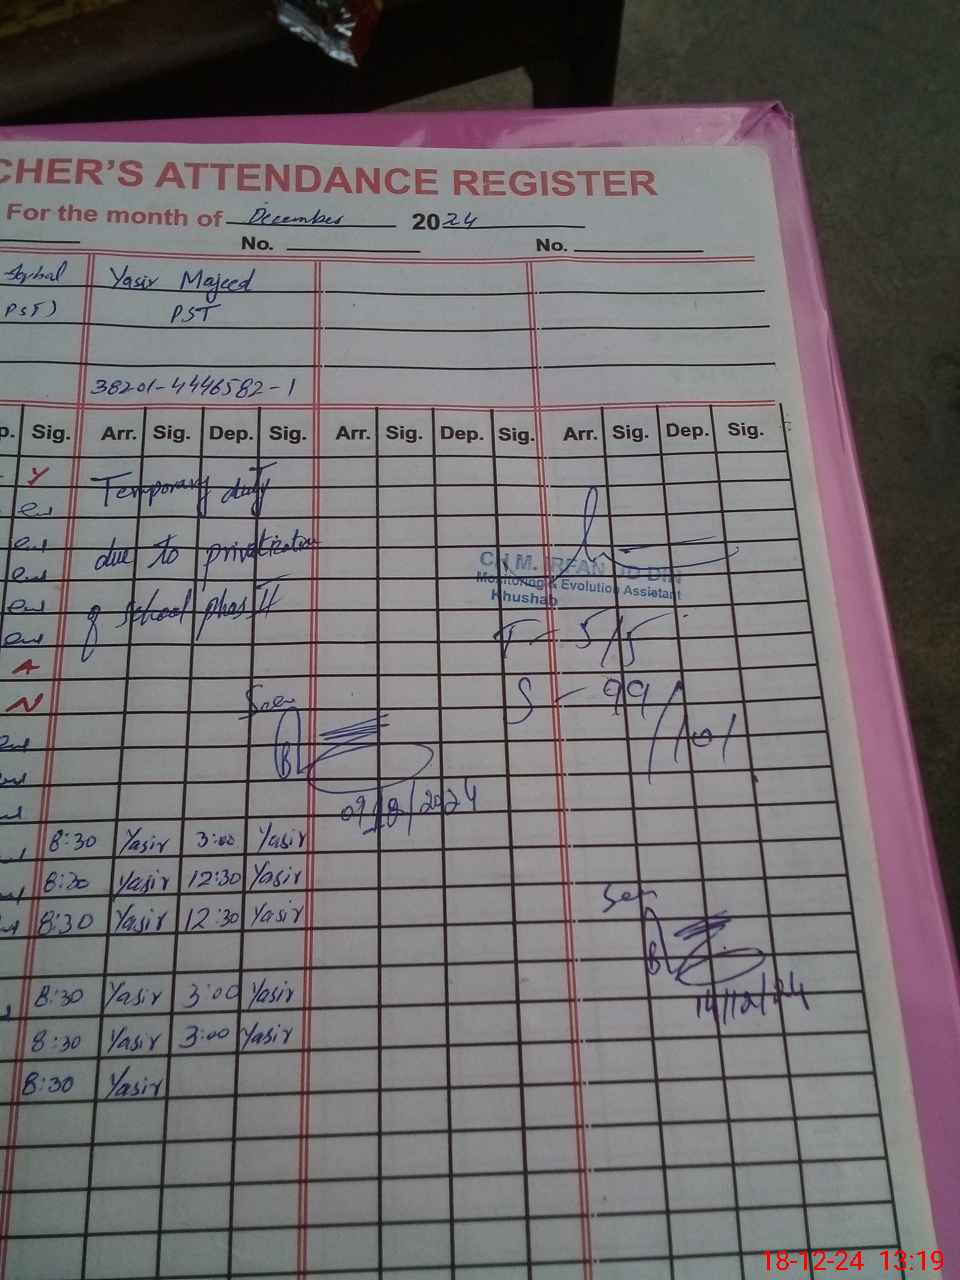 CHER'S ATTENDANCE REGISTER
For the month of December 2024
No. No.
Iqbal Yasir Majeed
PST) PST
38201-4446582-1
p. Sig. Arr. Sig. Dep. Sig. Arr. Sig. Dep. Sig. Arr. Sig. Dep. Sig.
Temporary duty
due to privatization
of school phas II
CH M. IRFAN UD DIN
Monitoring & Evolution Assistant
Khushab
T - 5/5
S - 99/101
A
N
Seen
09/12/2024
8:30 Yasir 3:00 Yasir
8:30 Yasir 12:30 Yasir
8:30 Yasir 12:30 Yasir
Seen
14/12/24
8:30 Yasir 3:00 Yasir
8:30 Yasir 3:00 Yasir
8:30 Yasir
18-12-24 13:19